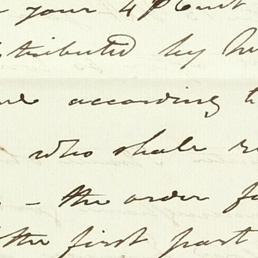 your 4 P Cent
tributed by
according t
who shall r
- the order f
the first part